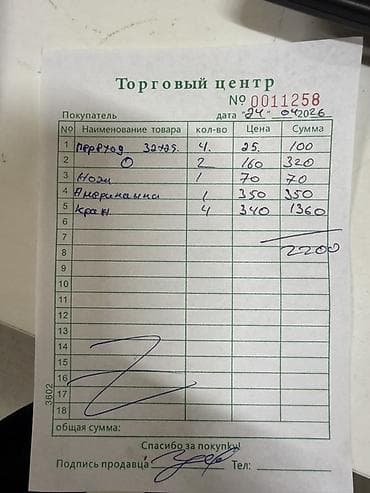 Торговый центр
№ 0011258
Покупатель дата 24 04 2026
№ Наименование товара кол-во Цена Сумма
1 Переход 32x25. 4. 25. 100
2 О 2 160 320
3 Нож 1 70 70
4 Американка 1 350 350
5 Кран 4 340 1360
6
7
8 2200
9
10
11
12
13
14
15
16
17
18
3602
общая сумма:
Спасибо за покупку!
Подпись продавца Тел: